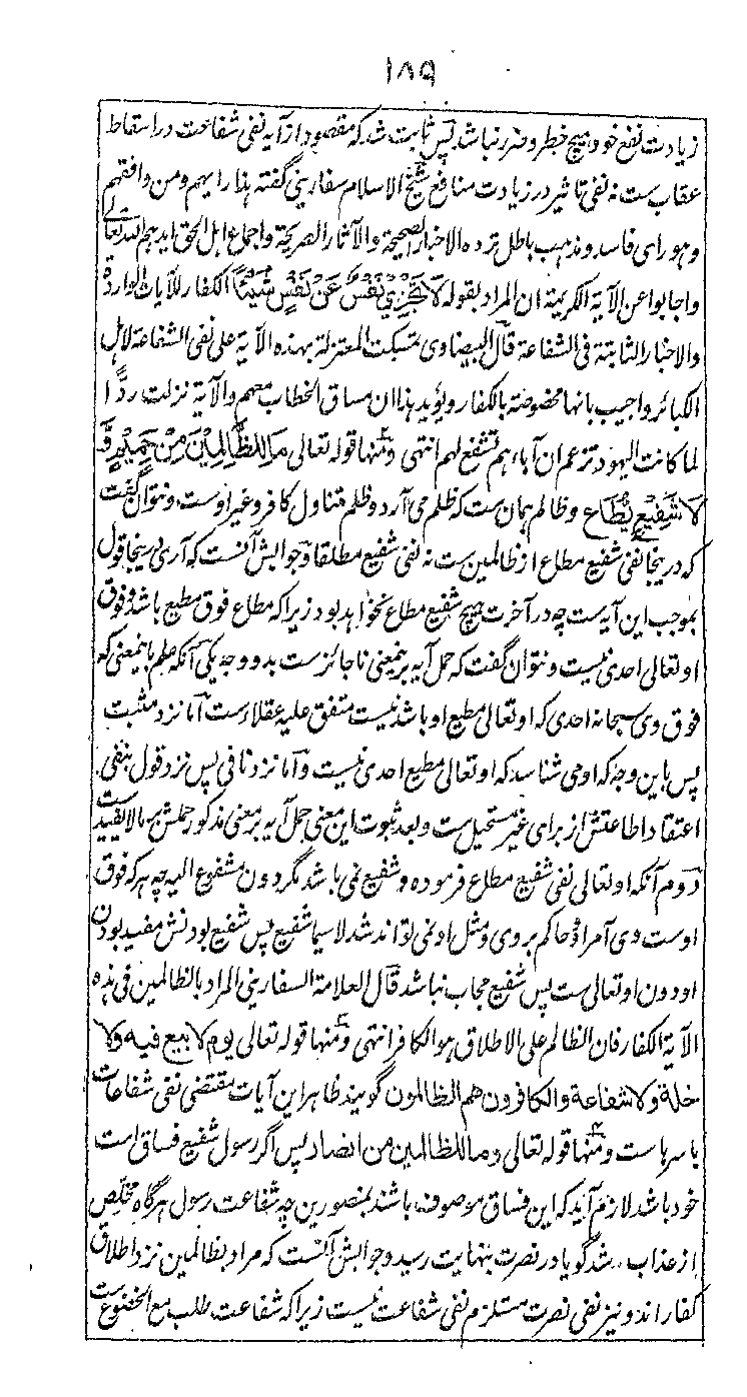 ۱۸۹
زیادت نفع خود ہیچ خطر و ضرر نباشد پس ثابت شد کہ مقصود از آیہ نفی شفاعت در اسقاط
عقاب ست نہ نفی تاثیر در زیادت منافع شیخ الاسلام سفارینی گفتہ ہذا رایہم ومن وافقہم
وہو رای فاسد ومذہب باطل تردہ الاخبار الصحیحۃ والآثار الصریحۃ واجماع اہل الحق ایدہم اللہ تعالی
واجابوا عن الآیۃ الکریمۃ ان المراد بقولہ لَا تَجْزِیْ نَفْسٌ عَنْ نَفْسٍ شَیْئًا الکفار للآیات الواردۃ
والاخبار الثابتۃ فی الشفاعۃ قال البیضاوی تمسکت المعتزلۃ بہذہ الآیۃ علی نفی الشفاعۃ لاہل
الکبائر واجیب بانہا مخصوصۃ بالکفار ویؤید ہذا ان مساق الخطاب معہم والآیۃ نزلت ردًّا
لما کانت الیہود تزعم ان آباءہم تشفع لہم انتہی ومنہا قولہ تعالی مَا لِلظَّالِمِیْنَ مِنْ حَمِیْمٍ وَّ
لَا شَفِیْعٍ یُّطَاعُ وظالم ہمان ست کہ ظلم می آرد وظلم متناول کافر وغیر اوست ونتوان گفت
کہ درینجا نفی شفیع مطاع از ظالمین ست نہ نفی شفیع مطلقا وجوابش آنست کہ آری درینجا قول
بموجب این آیہ ست چہ در آخرت ہیچ شفیع مطاع نخواہد بود زیرا کہ مطاع فوق مطیع باشد وفوق
او تعالی احدی نیست ونتوان گفت کہ حمل آیہ برینمعنی ناجائز ست بدو وجہ یکی آنکہ علم باینمعنی کہ
فوق وی سبحانہ احدی کہ او تعالی مطیع او باشد نیست متفق علیہ عقلا ست اما نزد مثبت
پس باین وجہ کہ او می شناسد کہ او تعالی مطیع احدی نیست واما نزد نافی پس نزد قول بنفی
اعتقاد اطاعتش از برای غیر مستحیل ست وبعد ثبوت این معنی حمل آیہ بر معنی مذکور حملش بر مالایفید ست
دوم آنکہ او تعالی نفی شفیع مطاع فرمودہ وشفیع نمی باشد مگر دون مشفوع الیہ چہ ہر کہ فوق
اوست وی آمر او وحاکم بر وی ومثل او نمی تواند شد لاسیما شفیع پس شفیع بودنش مفید بودن
او دون او تعالی ست پس شفیع مجاب نباشد قال العلامۃ السفارینی المراد بالظالمین فی ہذہ
الآیۃ الکفار فان الظالم علی الاطلاق ہو الکافر انتہی ومنہا قولہ تعالی یوم لا بیع فیہ ولا
خلۃ ولا شفاعۃ والکافرون ھم الظالمون گویند ظاہر این آیات مقتضی نفی شفاعات
باسرہا ست ومنہا قولہ تعالی وما للظالمین من انصار پس اگر رسول شفیع فساق امت
خود باشد لازم آید کہ این فساق موصوفہ باشند بمنصورین چہ شفاعت رسول ہرگاہ مخلص
از عذاب شد گویا در نصرت بنہایت رسید وجوابش آنست کہ مراد بظالمین نزد اطلاق
کفار اند ونیز نفی نصرت مستلزم نفی شفاعت نیست زیرا کہ شفاعت طلب مع الخضوع ست